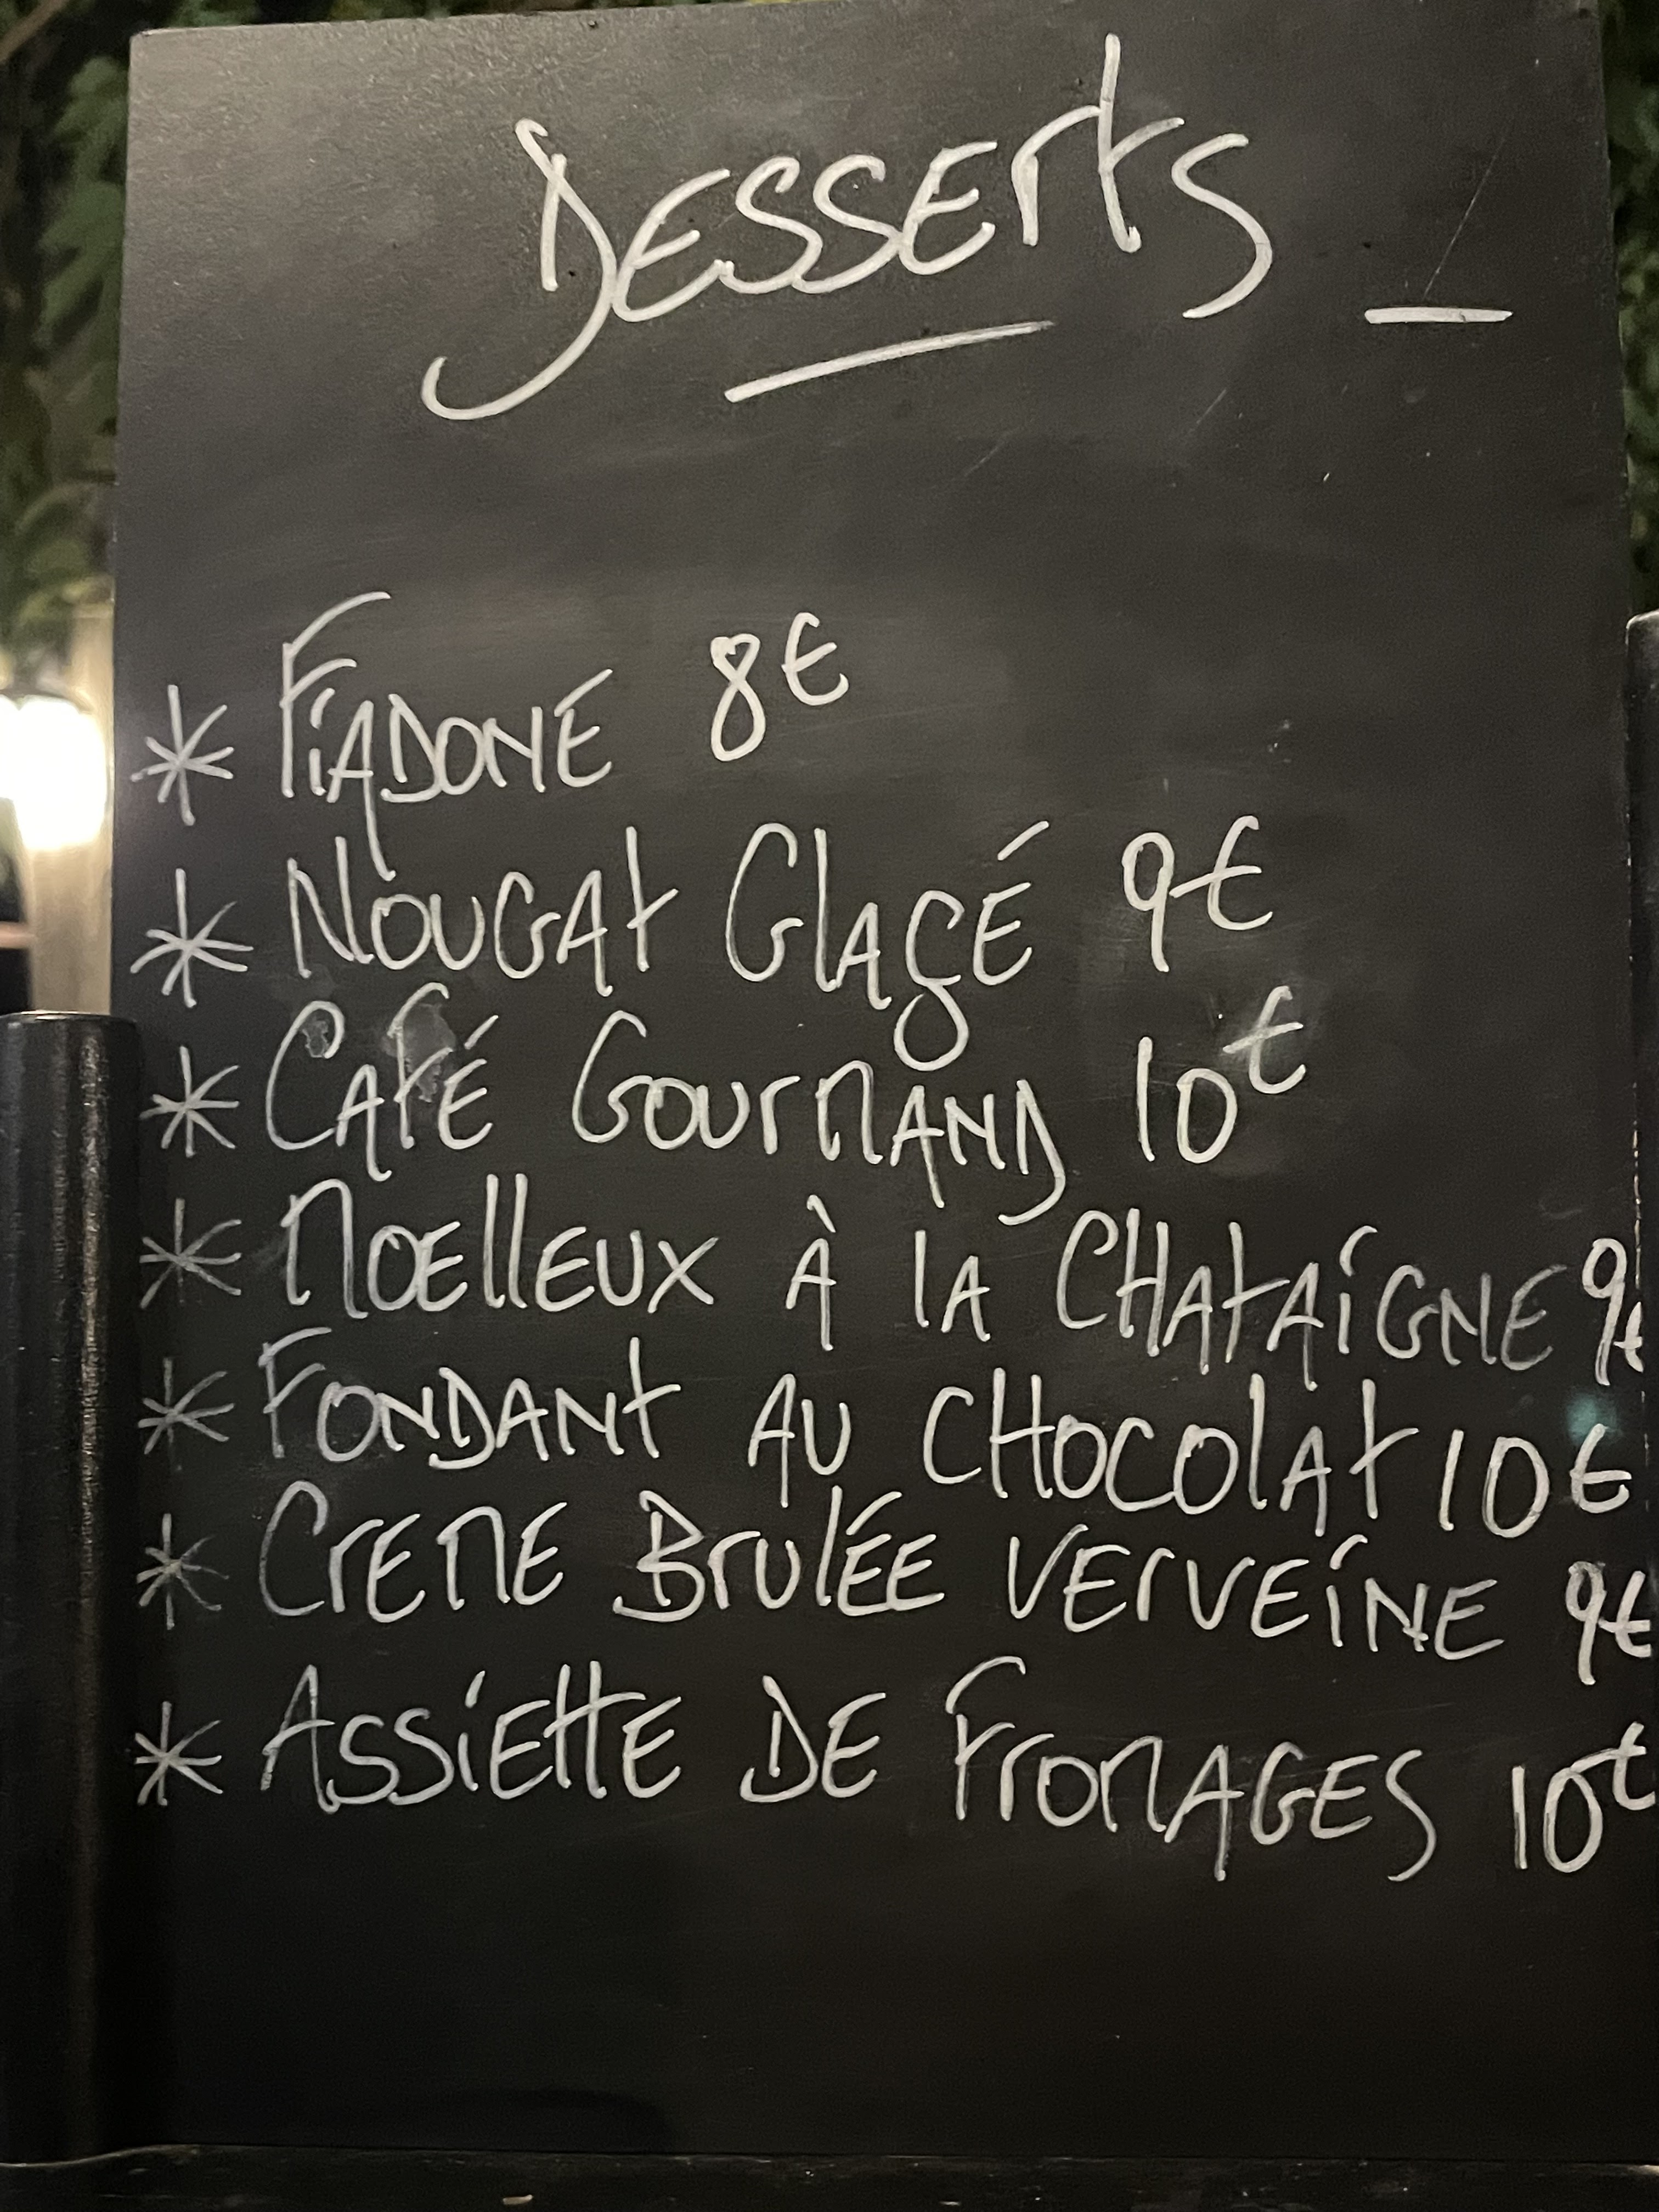 Desserts _
* Fiadone 8€
* Nougat Glaçé 9€
* Café Gourmand 10€
* Moelleux à la chataigne 9€
* Fondant au chocolat 10€
* Creme Brulée verveine 9€
* Assiette de fromages 10€